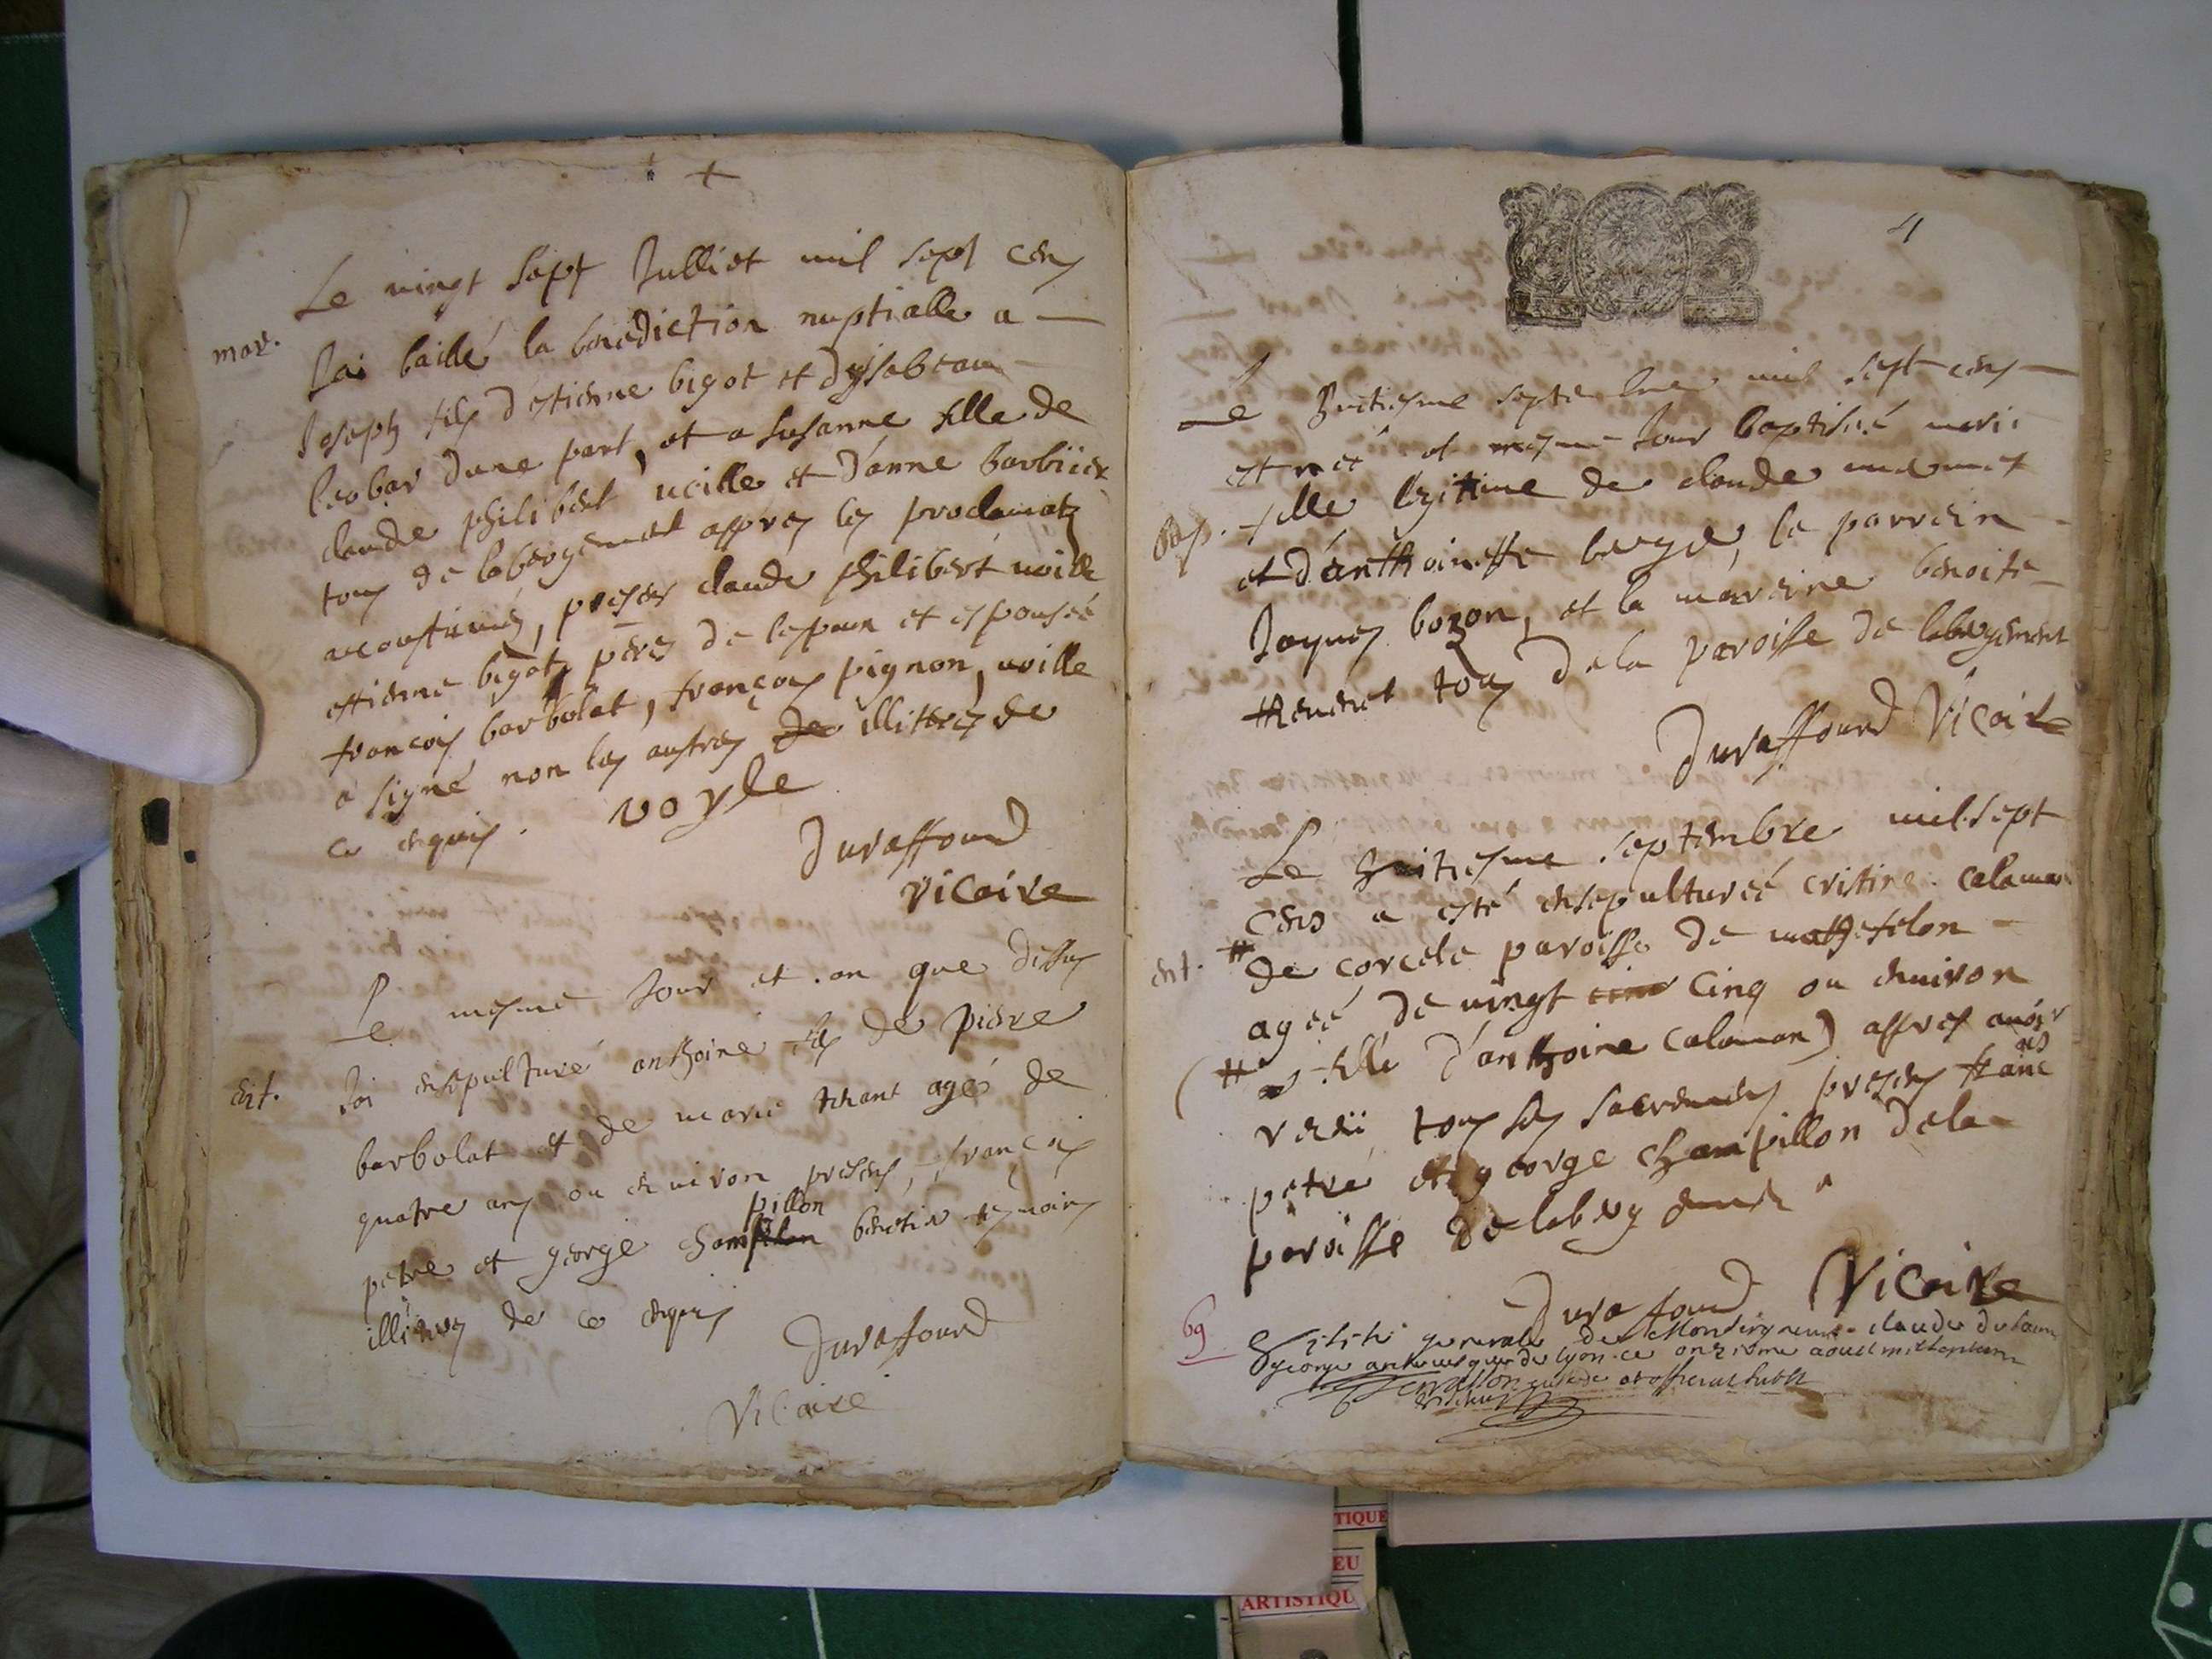 +
Le vingt sept Julliet mil sept cens
mar.
Jai baillé la benediction nuptialle a
Joseph fils d'estienne bigot et dysabeau
beobar dune part, et a susanne fille de
claude philibert voille et d'anne barbiier
tous de labergement appres les proclamatz
accoustumés, presens claude philibert voille
estienne bigot, peres de lespoux et espouseé
francois barbolat, françois pignon, voille
a signé non les autres de illitterez de
ce enquis. voyle
Duraffourd
vicaire
Le mesme Jour et an que dessus
ent.
Jai ensepulturé anthoine fils de pierre
barbolat et de marie agé de
quatre ans ou environ presens, françois
pillon
petre et george champillon temoins
illiterez de ce enquis
Duraffourd
Vicaire
4
Le huitiesme septembre mil sept cens
est neé et mesme Jour baptiseé marie
bap. fille legitime de claude
et d'anthoinette berger, le parrein
Jaques bozon, et la marreine benoite
thevenet tous de la paroisse de labergement
Duraffourd Vicaire
Le huitiesme septembre mil sept
cens a esté ensepultureé cristine calaman
ent. # de corcele paroisse de matthefelon
ageé de vingt cinq cinq ou environ
ans
(# fille d'anthoine calaman) appres avoir
receu tous ses sacremens presens franc
petre et george champillon dela
paroisse de labergement
Duraffourd Vicaire
69
Visite generale de Monseigneur claude de saint
george archevesque de lyon ce onzieme aoust mil sept cens
TIQUE
EU
ARTISTIQU